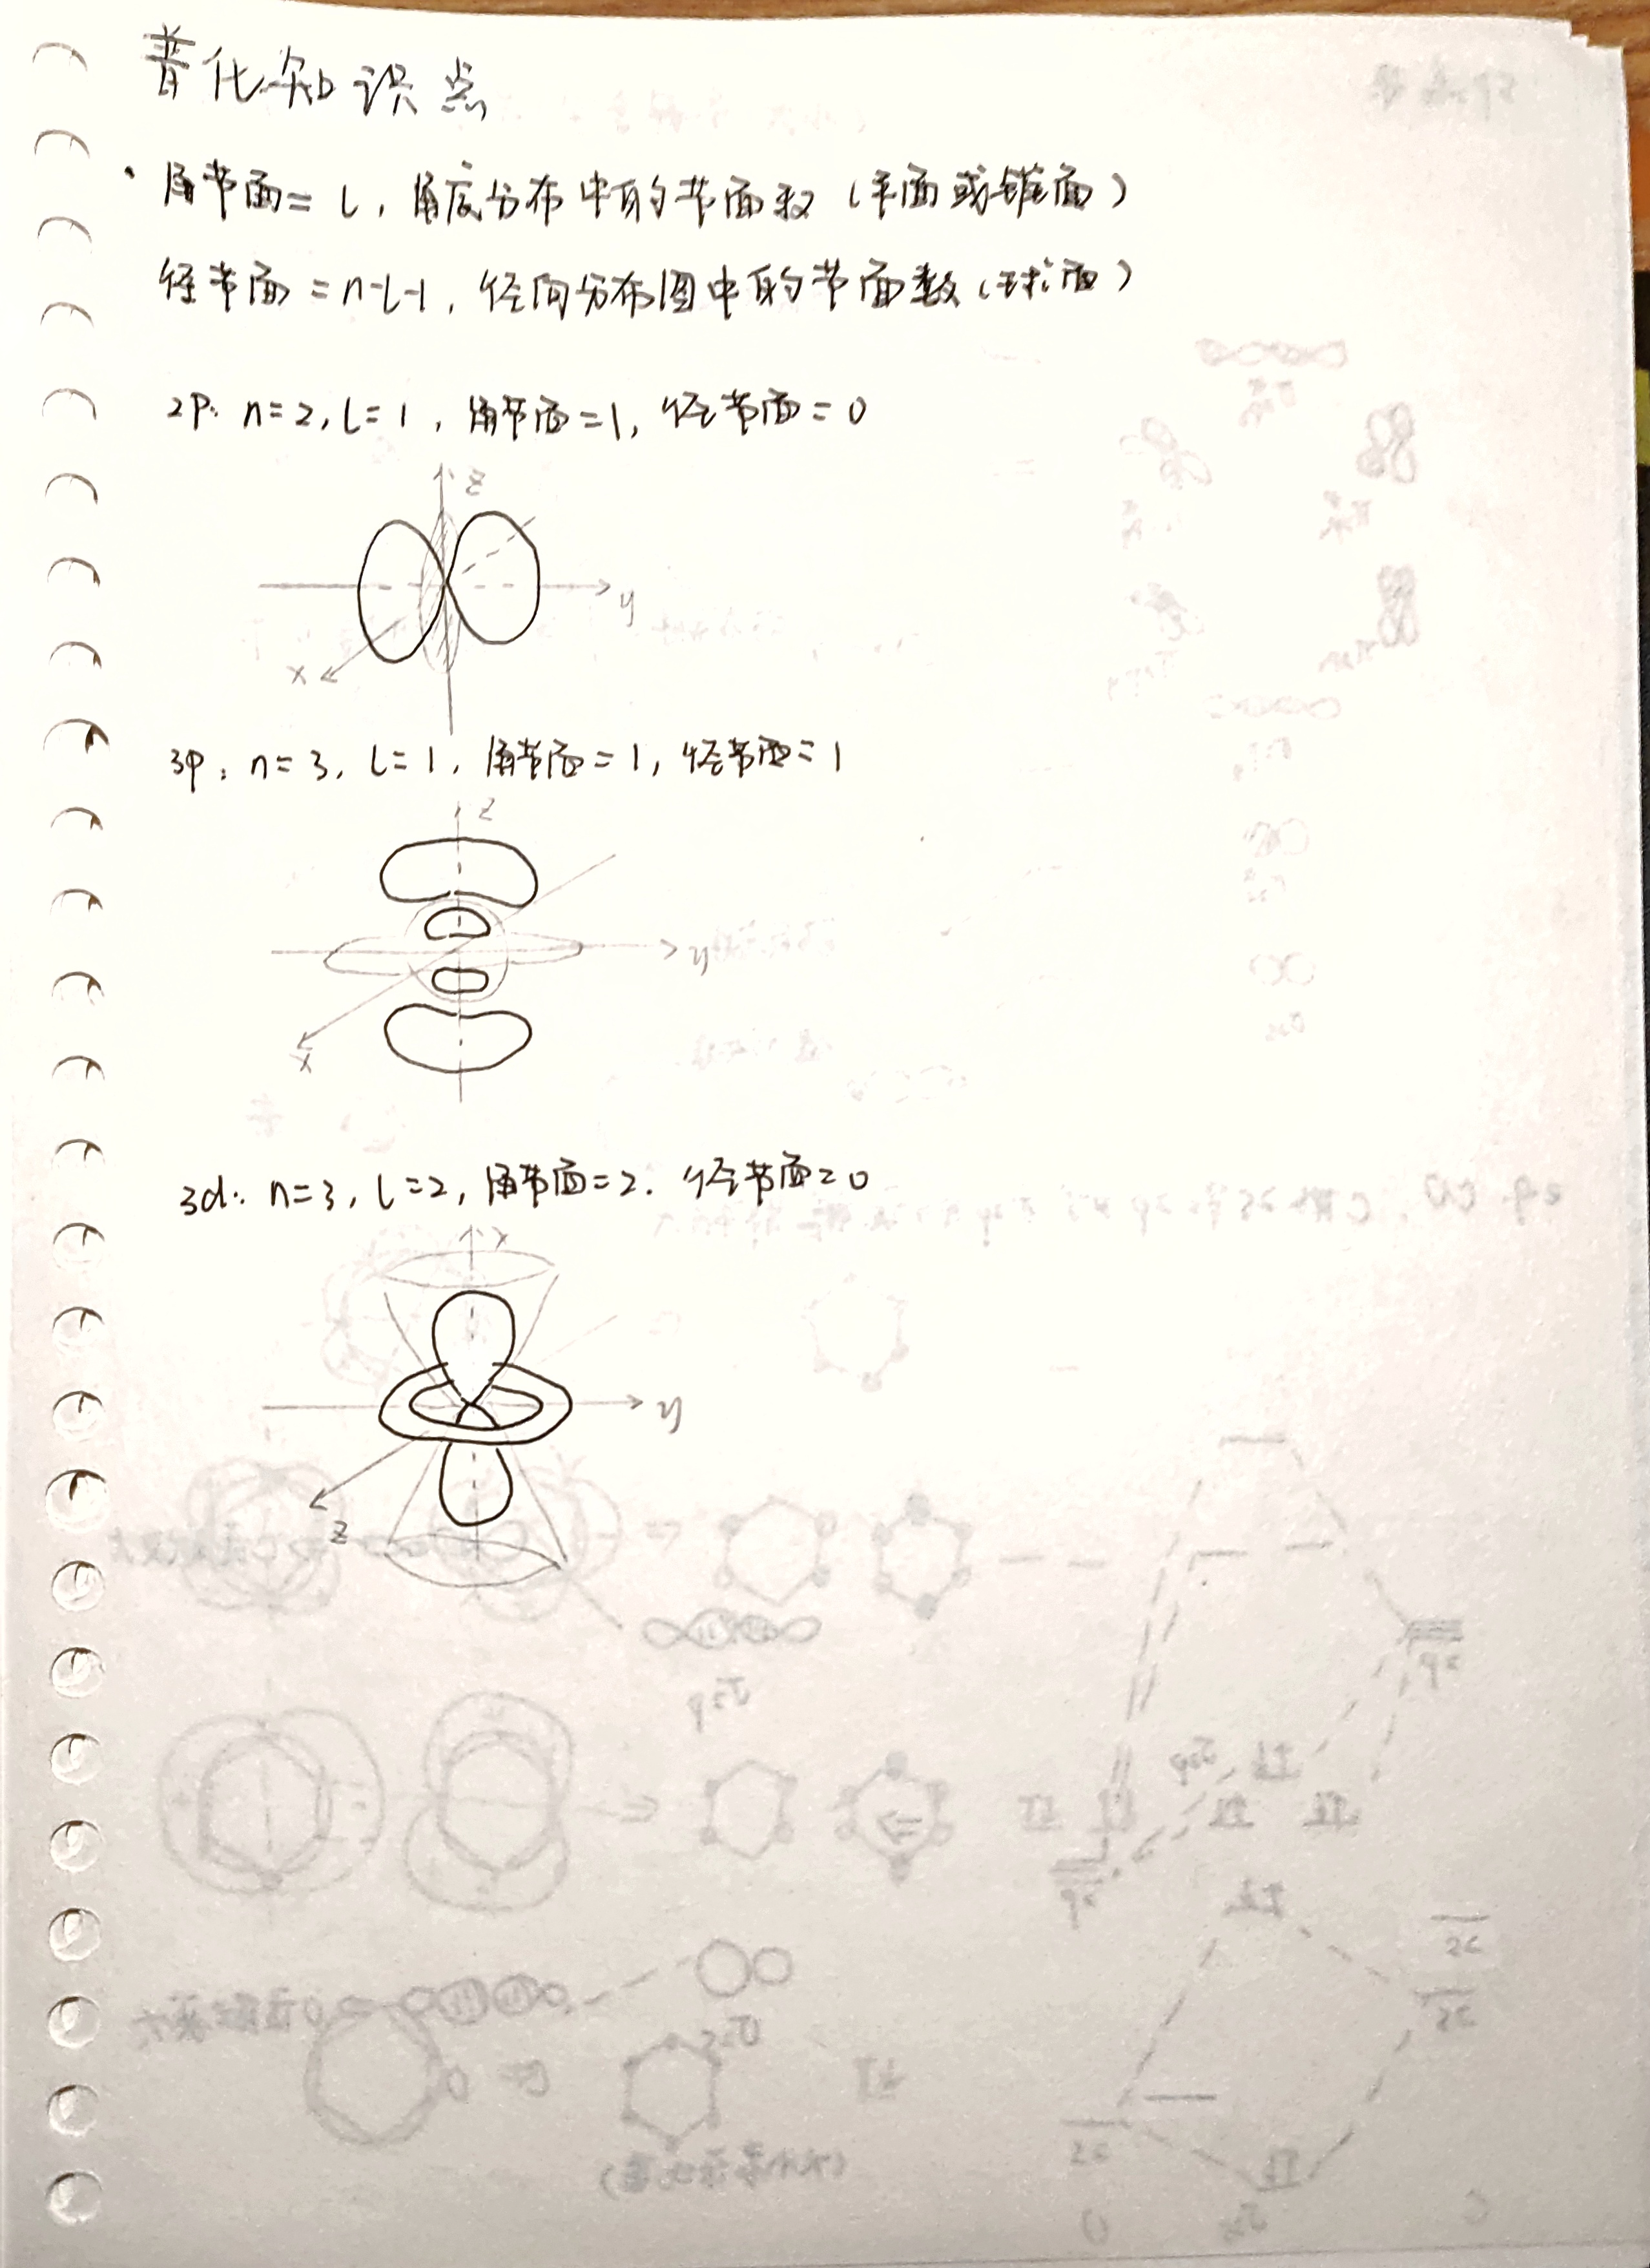 普化知识点
· 角节面=l, 角度分布中的节面数(平面或锥面)
径节面=n-l-1, 径向分布图中的节面数(球面)
2p: n=2, l=1, 角节面=1, 径节面=0
z
y
x
3p: n=3, l=1, 角节面=1, 径节面=1
z
y
x
3d: n=3, l=2, 角节面=2. 径节面=0
x
y
z